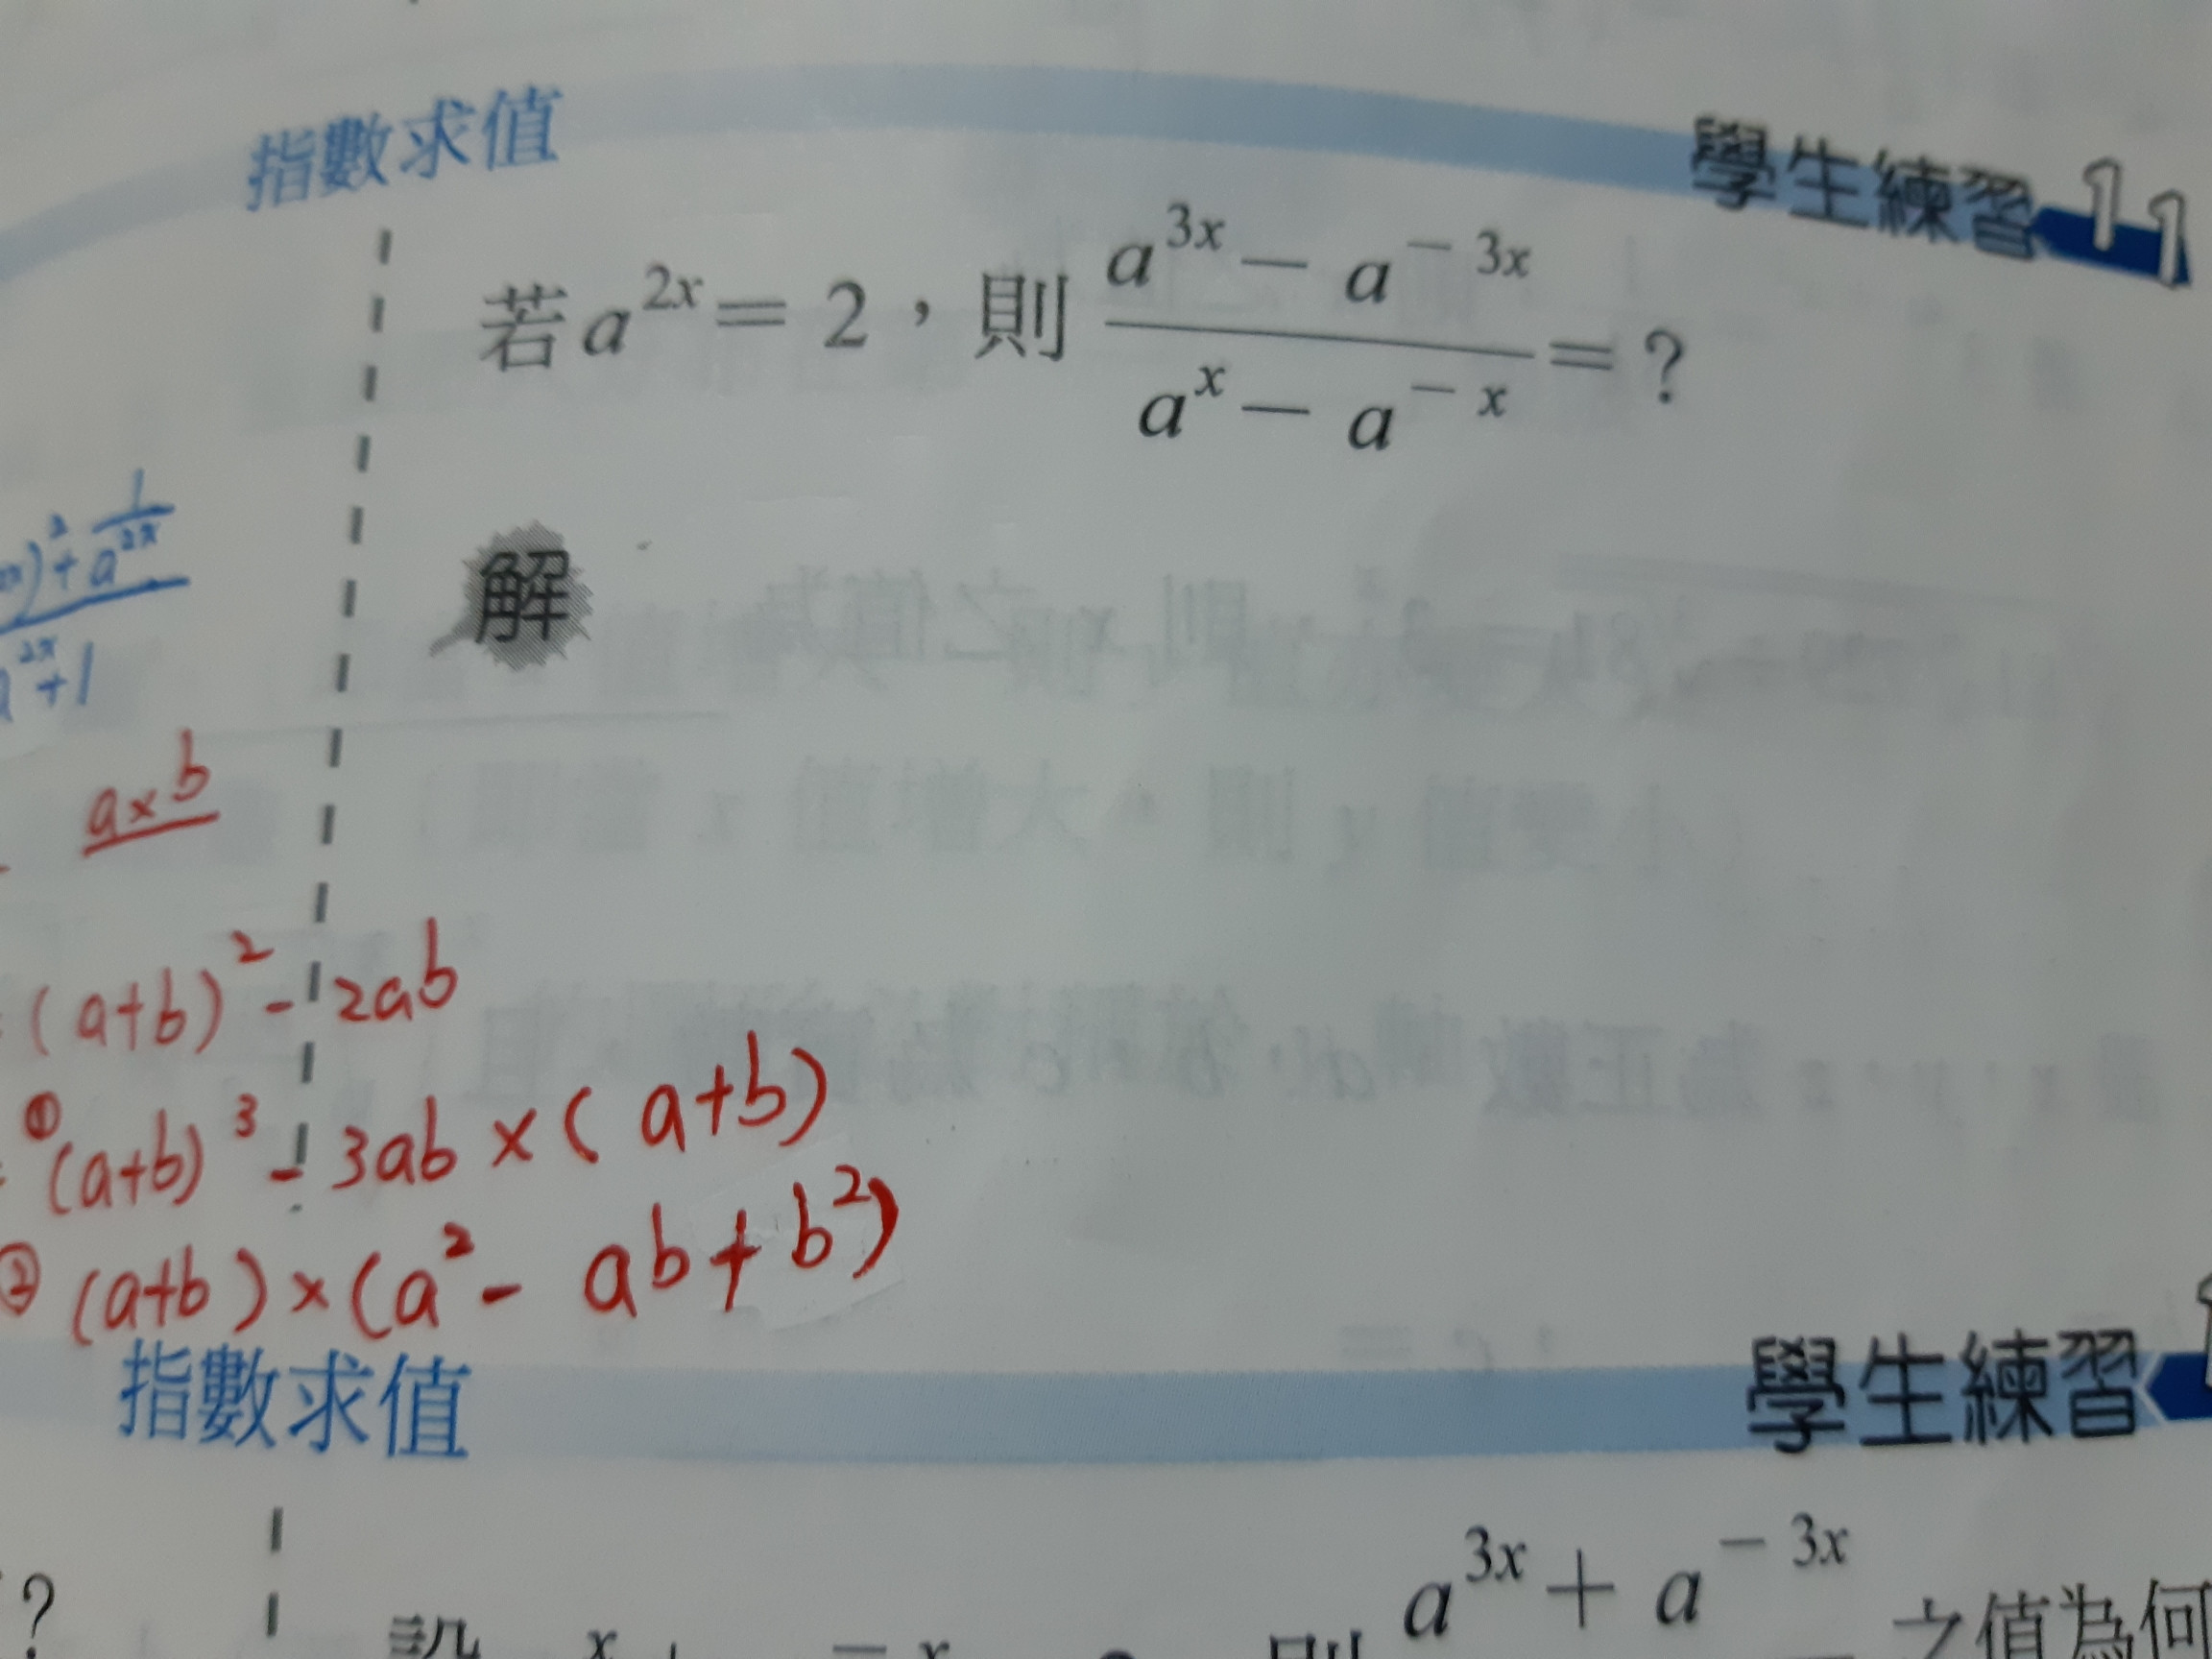 指數求值 學生練習 11
若 a^{2x} = 2，則 \frac{a^{3x} - a^{-3x}}{a^{x} - a^{-x}} = ?
解
)^2 + \frac{1}{a^{2x}}
a^{2x} + 1
a×b
(a+b)^2 - 2ab
① (a+b)^3 - 3ab × (a+b)
② (a+b) × (a^2 - ab + b^2)
指數求值 學生練習
?
a^{3x} + a^{-3x} 之值為何